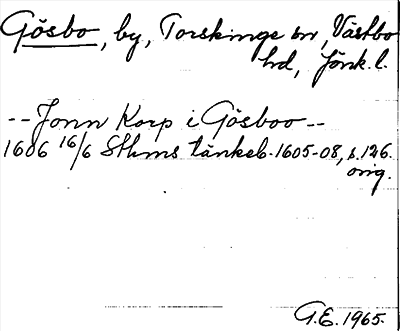 Gösbo, by, Torskinge sn, Västbo
hd, Jönk.l.
-- Jonn Korp i Gösboo --
1606 16/6 Sthms tänkeb. 1605-08, s.126.
orig.
G.E. 1965.